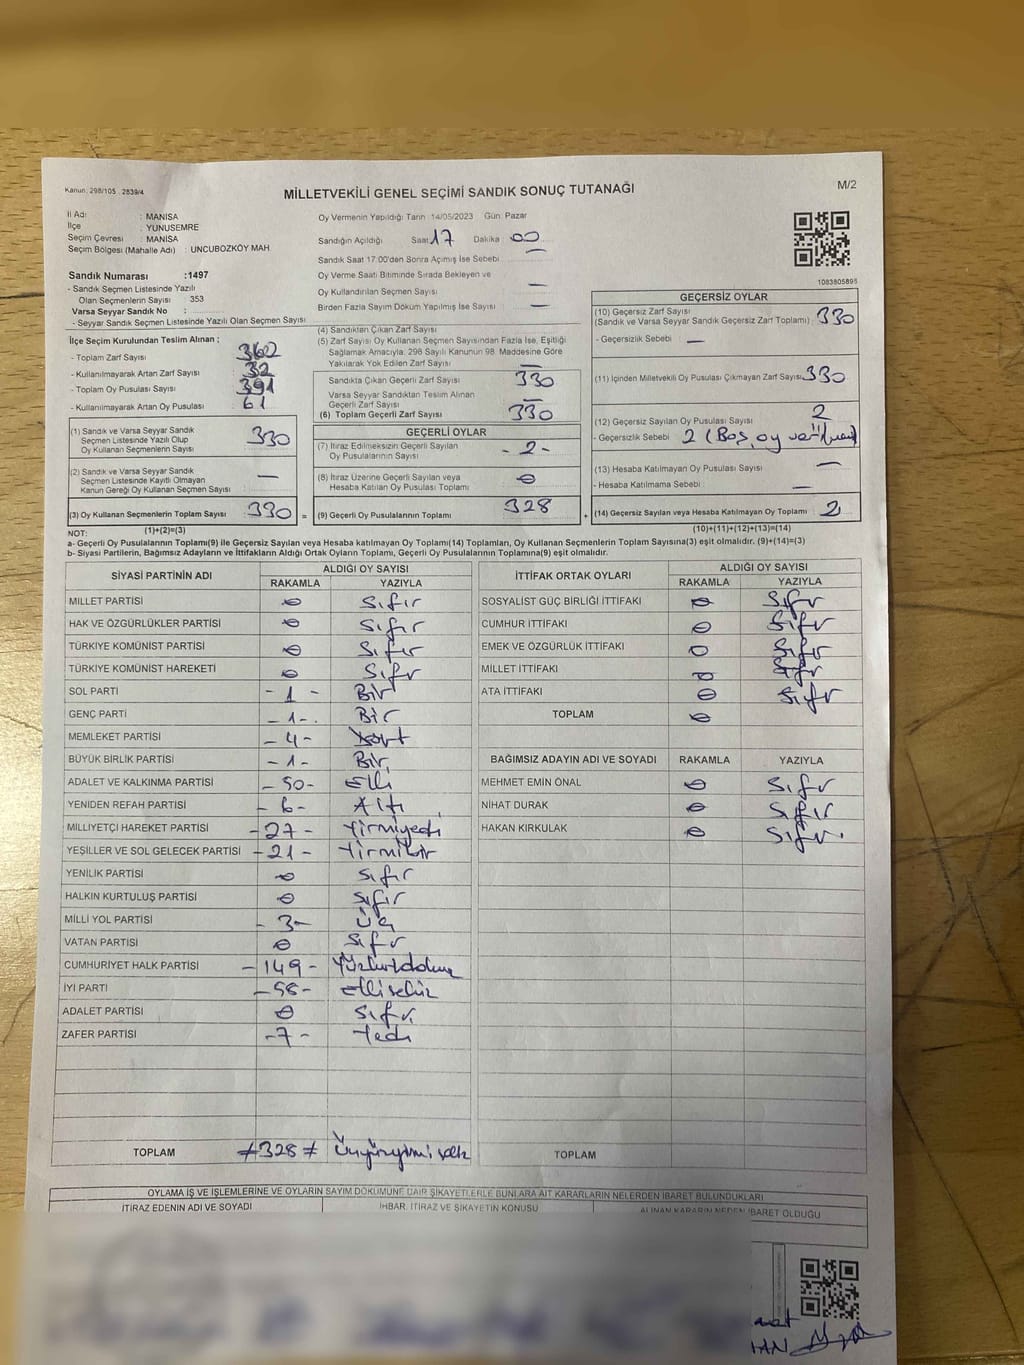 Kanun: 298/105 . 2839/4
MİLLETVEKİLİ GENEL SEÇİMİ SANDIK SONUÇ TUTANAĞI
M/2
İl Adı : MANİSA
İlçe : YUNUSEMRE
Seçim Çevresi : MANİSA
Seçim Bölgesi (Mahalle Adı) : UNCUBOZKÖY MAH.
Oy Vermenin Yapıldığı Tarih 14/05/2023 Gün: Pazar
Sandığın Açıldığı Saat 17 Dakika 00
Sandık Saat 17:00'den Sonra Açılmış İse Sebebi
Oy Verme Saati Bitiminde Sırada Bekleyen ve
Oy Kullandırılan Seçmen Sayısı —
Birden Fazla Sayım Döküm Yapılmış İse Sayısı —
1083805895
Sandık Numarası :1497
- Sandık Seçmen Listesinde Yazılı
Olan Seçmenlerin Sayısı : 353
Varsa Seyyar Sandık No :
- Seyyar Sandık Seçmen Listesinde Yazılı Olan Seçmen Sayısı
İlçe Seçim Kurulundan Teslim Alınan :
- Toplam Zarf Sayısı : 362
- Kullanılmayarak Artan Zarf Sayısı : 32
- Toplam Oy Pusulası Sayısı : 391
- Kullanılmayarak Artan Oy Pusulası : 61
(1) Sandık ve Varsa Seyyar Sandık
Seçmen Listesinde Yazılı Olup
Oy Kullanan Seçmenlerin Sayısı 330
(2) Sandık ve Varsa Seyyar Sandık
Seçmen Listesinde Kayıtlı Olmayan
Kanun Gereği Oy Kullanan Seçmen Sayısı —
(3) Oy Kullanan Seçmenlerin Toplam Sayısı 330 =
(1)+(2)=(3)
(4) Sandıktan Çıkan Zarf Sayısı
(5) Zarf Sayısı Oy Kullanan Seçmen Sayısından Fazla İse, Eşitliği
Sağlamak Amacıyla, 298 Sayılı Kanunun 98. Maddesine Göre
Yakılarak Yok Edilen Zarf Sayısı —
Sandıkta Çıkan Geçerli Zarf Sayısı 330
Varsa Seyyar Sandıktan Teslim Alınan
Geçerli Zarf Sayısı —
(6) Toplam Geçerli Zarf Sayısı 330
GEÇERLİ OYLAR
(7) İtiraz Edilmeksizin Geçerli Sayılan
Oy Pusulalarının Sayısı - 2 -
(8) İtiraz Üzerine Geçerli Sayılan veya
Hesaba Katılan Oy Pusulası Toplamı 0
(9) Geçerli Oy Pusulalarının Toplamı 328 +
GEÇERSİZ OYLAR
(10) Geçersiz Zarf Sayısı
(Sandık ve Varsa Seyyar Sandık Geçersiz Zarf Toplamı) 330
- Geçersizlik Sebebi : —
(11) İçinden Milletvekili Oy Pusulası Çıkmayan Zarf Sayısı 330
(12) Geçersiz Sayılan Oy Pusulası Sayısı 2
- Geçersizlik Sebebi : 2 (Boş, oy
(13) Hesaba Katılmayan Oy Pusulası Sayısı —
- Hesaba Katılmama Sebebi : —
(14) Geçersiz Sayılan veya Hesaba Katılmayan Oy Toplamı 2
(10)+(11)+(12)+(13)=(14)
NOT:
a- Geçerli Oy Pusulalarının Toplamı(9) ile Geçersiz Sayılan veya Hesaba katılmayan Oy Toplamı(14) Toplamları, Oy Kullanan Seçmenlerin Toplam Sayısına(3) eşit olmalıdır. (9)+(14)=(3)
b- Siyasi Partilerin, Bağımsız Adayların ve İttifakların Aldığı Ortak Oyların Toplamı, Geçerli Oy Pusulalarının Toplamına(9) eşit olmalıdır.
SİYASİ PARTİNİN ADI
ALDIĞI OY SAYISI
RAKAMLA YAZIYLA
MİLLET PARTİSİ 0 Sıfır
HAK VE ÖZGÜRLÜKLER PARTİSİ 0 Sıfır
TÜRKİYE KOMÜNİST PARTİSİ 0 Sıfır
TÜRKİYE KOMÜNİST HAREKETİ 0 Sıfır
SOL PARTİ - 1 - Bir
GENÇ PARTİ - 1 - Bir
MEMLEKET PARTİSİ - 4 - Dört
BÜYÜK BİRLİK PARTİSİ - 1 - Bir
ADALET VE KALKINMA PARTİSİ - 50 - Elli
YENİDEN REFAH PARTİSİ - 6 - Altı
MİLLİYETÇİ HAREKET PARTİSİ - 27 - Yirmiyedi
YEŞİLLER VE SOL GELECEK PARTİSİ - 21 - Yirmibir
YENİLİK PARTİSİ 0 Sıfır
HALKIN KURTULUŞ PARTİSİ 0 Sıfır
MİLLİ YOL PARTİSİ - 3 - Üç
VATAN PARTİSİ 0 Sıfır
CUMHURİYET HALK PARTİSİ - 149 - Yüzkırkdokuz
İYİ PARTİ - 58 - Ellisekiz
ADALET PARTİSİ 0 Sıfır
ZAFER PARTİSİ - 7 - Yedi
TOPLAM ≠ 328 ≠ Üçyüzyirmisekiz
İTTİFAK ORTAK OYLARI
ALDIĞI OY SAYISI
RAKAMLA YAZIYLA
SOSYALİST GÜÇ BİRLİĞİ İTTİFAKI 0 Sıfır
CUMHUR İTTİFAKI 0 Sıfır
EMEK VE ÖZGÜRLÜK İTTİFAKI 0 Sıfır
MİLLET İTTİFAKI 0 Sıfır
ATA İTTİFAKI 0 Sıfır
TOPLAM 0
BAĞIMSIZ ADAYIN ADI VE SOYADI RAKAMLA YAZIYLA
MEHMET EMİN ÖNAL 0 Sıfır
NİHAT DURAK 0 Sıfır
HAKAN KIRKULAK 0 Sıfır
TOPLAM
OYLAMA İŞ VE İŞLEMLERİNE VE OYLARIN SAYIM DÖKÜMÜNE DAİR ŞİKAYETLERLE BUNLARA AİT KARARLARIN NELERDEN İBARET BULUNDUKLARI
İTİRAZ EDENİN ADI VE SOYADI İHBAR, İTİRAZ VE ŞİKAYETİN KONUSU ALINAN KARARIN NEDEN İBARET OLDUĞU